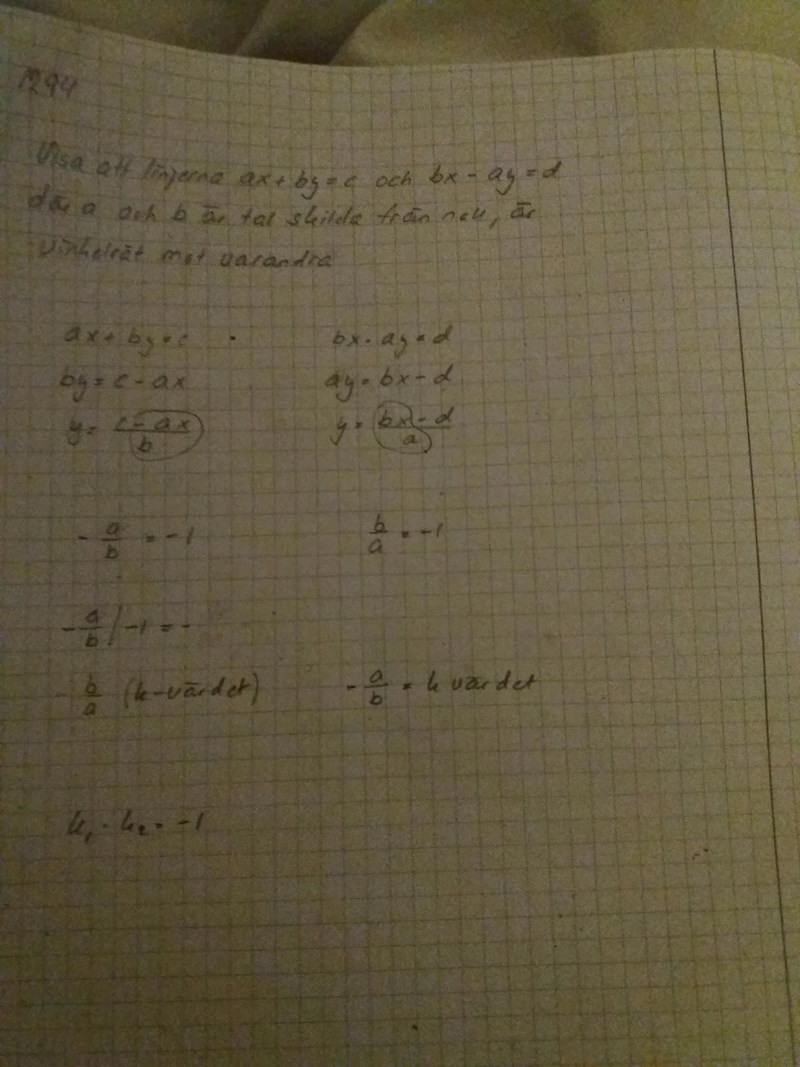 1294
Visa att linjerna ax + by = c och bx - ay = d
där a och b är tal skilda från noll, är
vinkelrät mot varandra
ax + by = c
bx - ay = d
by = c - ax
ay = bx - d
y = (c - ax)/b
y = (bx - d)/a
- a/b = -1
b/a = -1
- a/b / -1 = -
b/a (k-värdet)
- a/b = k värdet
k₁ · k₂ = -1